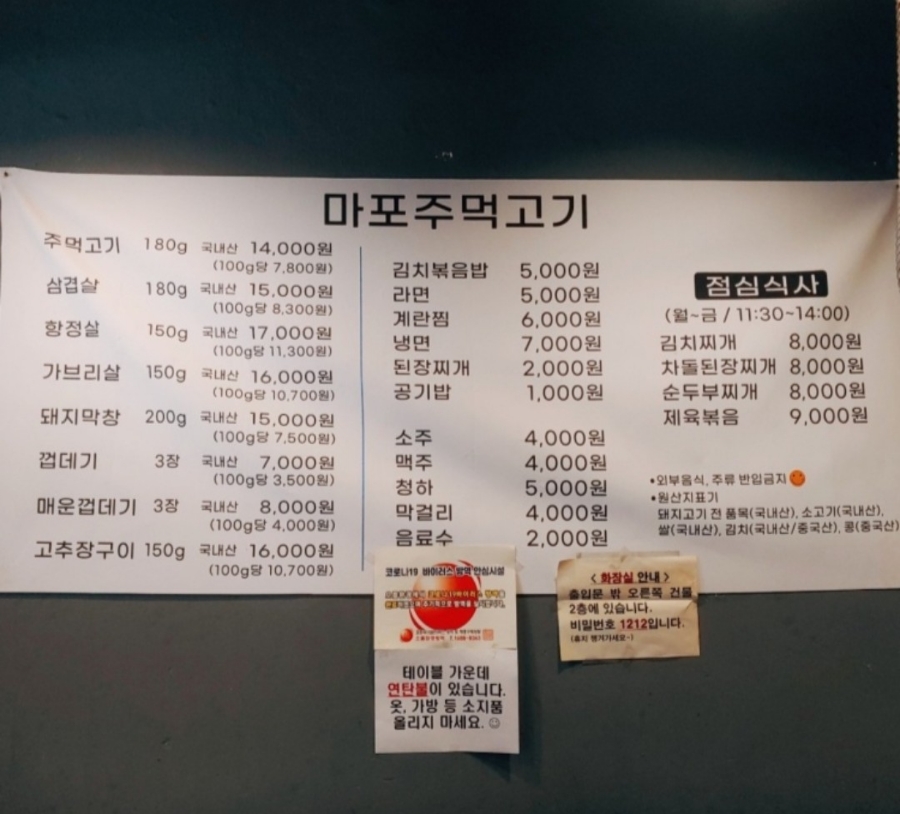 마포주먹고기
주먹고기 180g 국내산 14,000원
(100g당 7,800원)
삼겹살 180g 국내산 15,000원
(100g당 8,300원)
항정살 150g 국내산 17,000원
(100g당 11,300원)
가브리살 150g 국내산 16,000원
(100g당 10,700원)
돼지막창 200g 국내산 15,000원
(100g당 7,500원)
껍데기 3장 국내산 7,000원
(100g당 3,500원)
매운껍데기 3장 국내산 8,000원
(100g당 4,000원)
고추장구이 150g 국내산 16,000원
(100g당 10,700원)
김치볶음밥 5,000원
라면 5,000원
계란찜 6,000원
냉면 7,000원
된장찌개 2,000원
공기밥 1,000원
소주 4,000원
맥주 4,000원
청하 5,000원
막걸리 4,000원
음료수 2,000원
점심식사
(월~금 / 11:30~14:00)
김치찌개 8,000원
차돌된장찌개 8,000원
순두부찌개 8,000원
제육볶음 9,000원
•외부음식, 주류 반입금지
•원산지표기
돼지고기 전 품목(국내산), 소고기(국내산),
쌀(국내산), 김치(국내산/중국산), 콩(중국산)
코로나19 바이러스 방역 안심시설
테이블 가운데
연탄불이 있습니다.
옷, 가방 등 소지품
올리지 마세요. ☺
< 화장실 안내 >
출입문 밖 오른쪽 건물
2층에 있습니다.
비밀번호 1212입니다.
(휴지 챙겨가세요~)